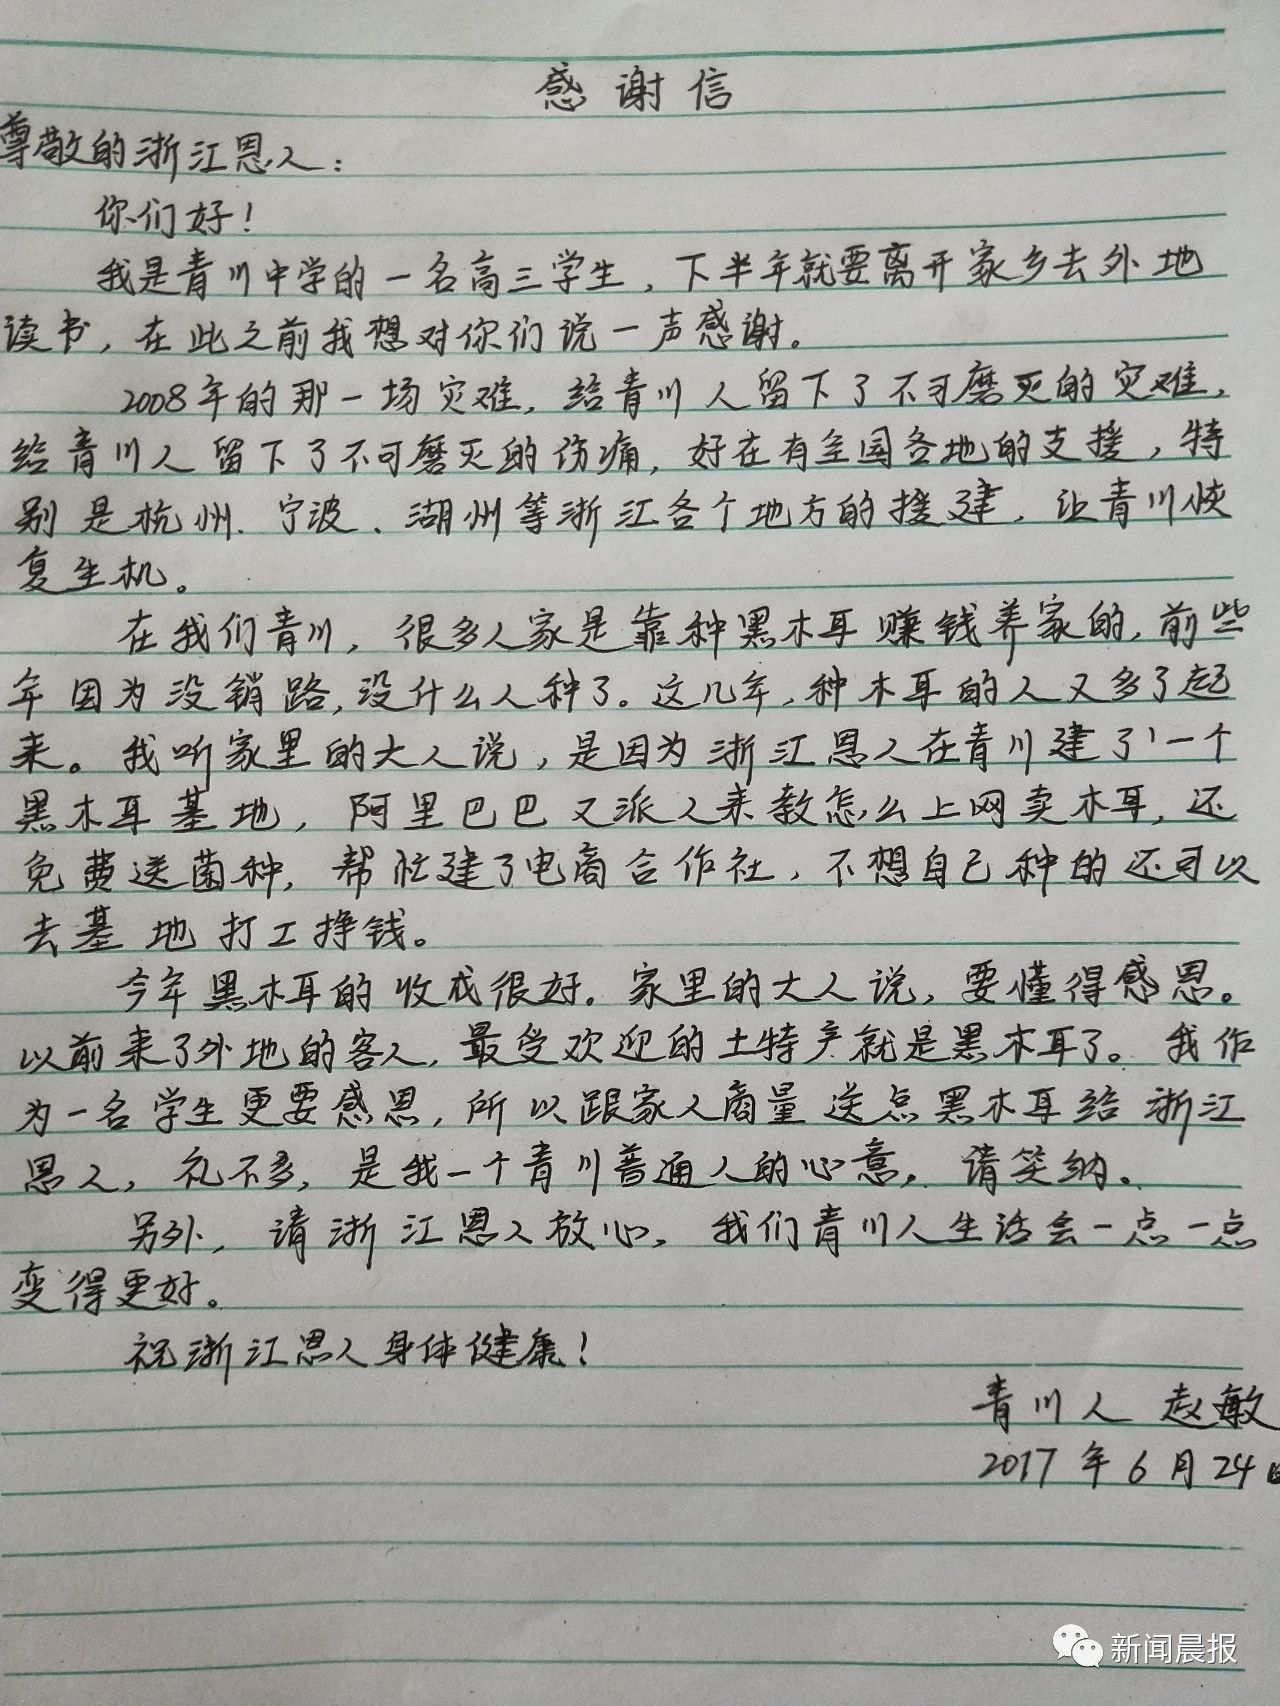 感谢信
尊敬的浙江恩人：
你们好！
我是青川中学的一名高三学生，下半年就要离开家乡去外地
读书，在此之前我想对你们说一声感谢。
2008年的那一场灾难，给青川人留下了不可磨灭的灾难，
给青川人留下了不可磨灭的伤痛，好在有全国各地的支援，特
别是杭州、宁波、湖州等浙江各个地方的援建，让青川恢
复生机。
在我们青川，很多人家是靠种黑木耳赚钱养家的，前些
年因为没销路，没什么人种了。这几年，种木耳的人又多了起
来。我听家里的大人说，是因为浙江恩人在青川建了一个
黑木耳基地，阿里巴巴又派人来教怎么上网卖木耳，还
免费送菌种，帮忙建了电商合作社，不想自己种的还可以
去基地打工挣钱。
今年黑木耳的收成很好。家里的大人说，要懂得感恩。
以前来了外地的客人，最受欢迎的土特产就是黑木耳了。我作
为一名学生更要感恩，所以跟家人商量送点黑木耳给浙江
恩人，礼不多，是我一个青川普通人的心意，请笑纳。
另外，请浙江恩人放心，我们青川人生活会一点一点
变得更好。
祝浙江恩人身体健康！
青川人 赵敏
2017年6月24日
新闻晨报